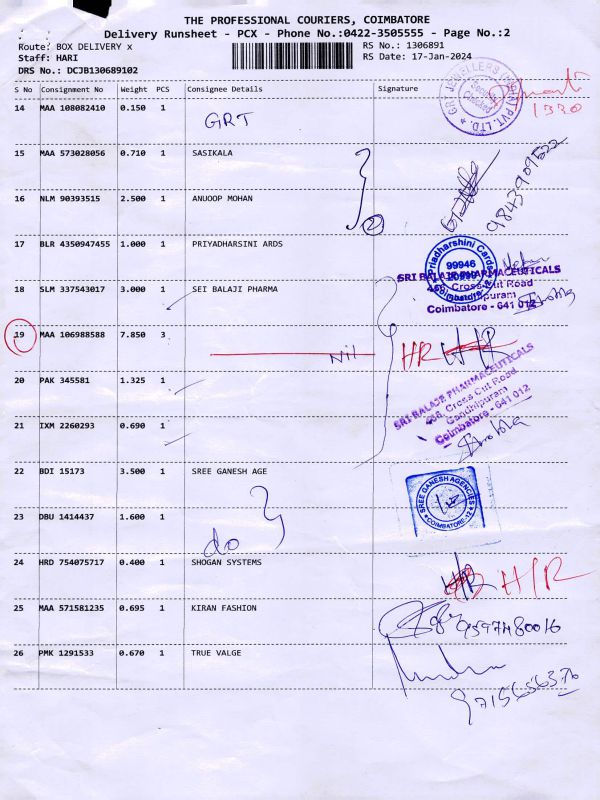 THE PROFESSIONAL COURIERS, COIMBATORE
Delivery Runsheet - PCX - Phone No.:0422-3505555 - Page No.:2
Route: BOX DELIVERY x RS No.: 1306891
Staff: HARI RS Date: 17-Jan-2024
DRS No.: DCJB130689102
S No Consignment No Weight PCS Consignee Details Signature
14 MAA 108082410 0.150 1 GRT
1330
15 MAA 573028056 0.710 1 SASIKALA
16 NLM 90393515 2.500 1 ANUOOP MOHAN
2
17 BLR 4350947455 1.000 1 PRIYADHARSINI ARDS
Priadharshini Cards
99946
Coimbatore
18 SLM 337543017 3.000 1 SEI BALAJI PHARMA
SRI BALAJE PHARMACEUTICALS
466, Cross Cut Road
Coimbatore - 641 012
19 MAA 106988588 7.850 3 Nil HR
20 PAK 345581 1.325 1
SRI BALAJE PHARMACEUTICALS
466, Cross Cut Road
Gandhipuram
Coimbatore - 641 012
21 IXM 2260293 0.690 1
22 BDI 15173 3.500 1 SREE GANESH AGE
SREE GANESH AGENCIES
COIMBATORE-12
23 DBU 1414437 1.600 1 do
24 HRD 754075717 0.400 1 SHOGAN SYSTEMS H/R
25 MAA 571581235 0.695 1 KIRAN FASHION
9597480016
26 PMK 1291533 0.670 1 TRUE VALGE